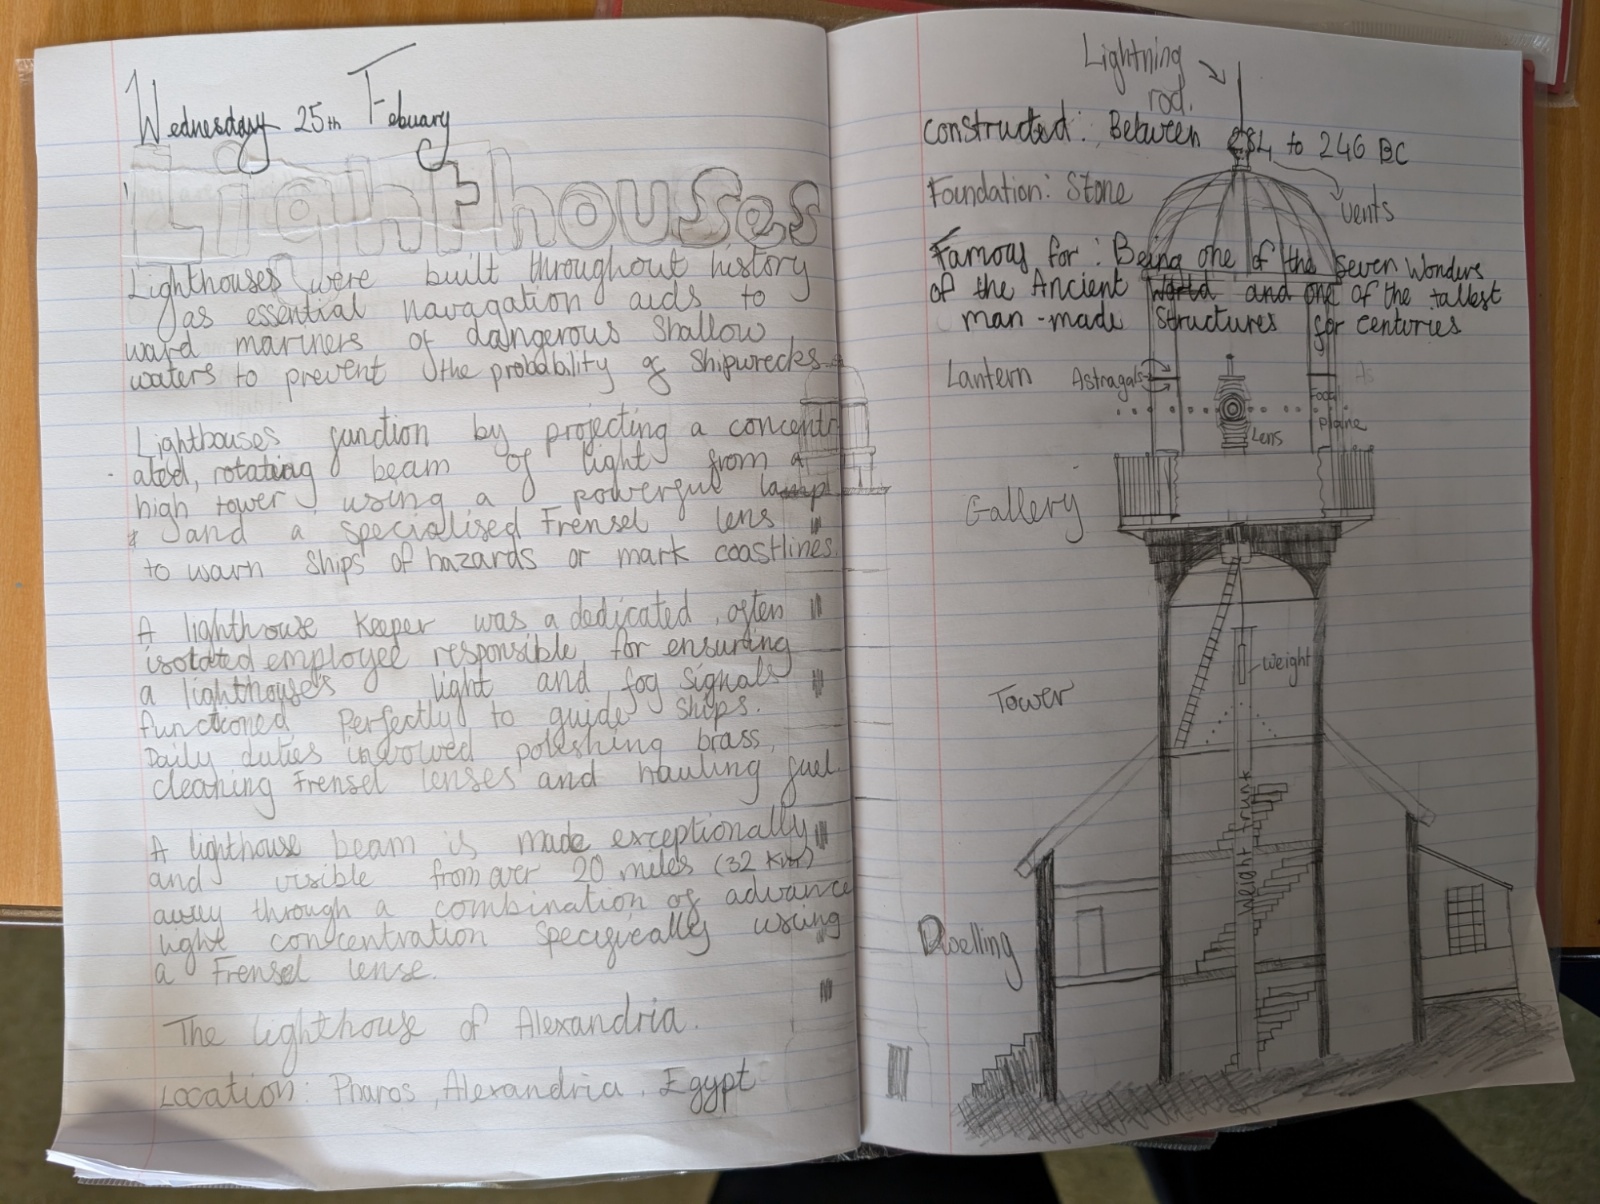 Wednesday 25th Febuary
Lighthouses
Lighthouses were built throughout history
as essential navagation aids to
ward mariners of dangerous shallow
waters to prevent the probability of Shipwrecks
Lighthouses function by projecting a concentr
ated, rotating beam of light from a
high tower, using a powerful lamp
and a specialised Frensel lens
to warn ships of hazards or mark coastlines.
A lighthouse keeper was a dedicated, often
isolated employee responsible for ensuring
a lighthouse's light and fog signals
functioned perfectly to guide ships.
Daily duties invowed polishing brass,
cleaning Frensel lenses and hauling fuel.
A lighthouse beam is made exceptionally
and visible from over 20 miles (32 km)
away through a combination of advance
light concentration specifically using
a Frensel lense.
The lighthouse of Alexandria.
Location: Pharos, Alexandria, Egypt
Lightning
rod.
Constructed: Between 284 to 246 BC
Foundation: Stone
vents
Famous for: Being one of the seven Wonders
of the Ancient World and one of the tallest
man-made structures for centuries
Lantern
Astragals
Focal
plane
Lens
Gallery
weight
Tower
Weight trunk
Dwelling